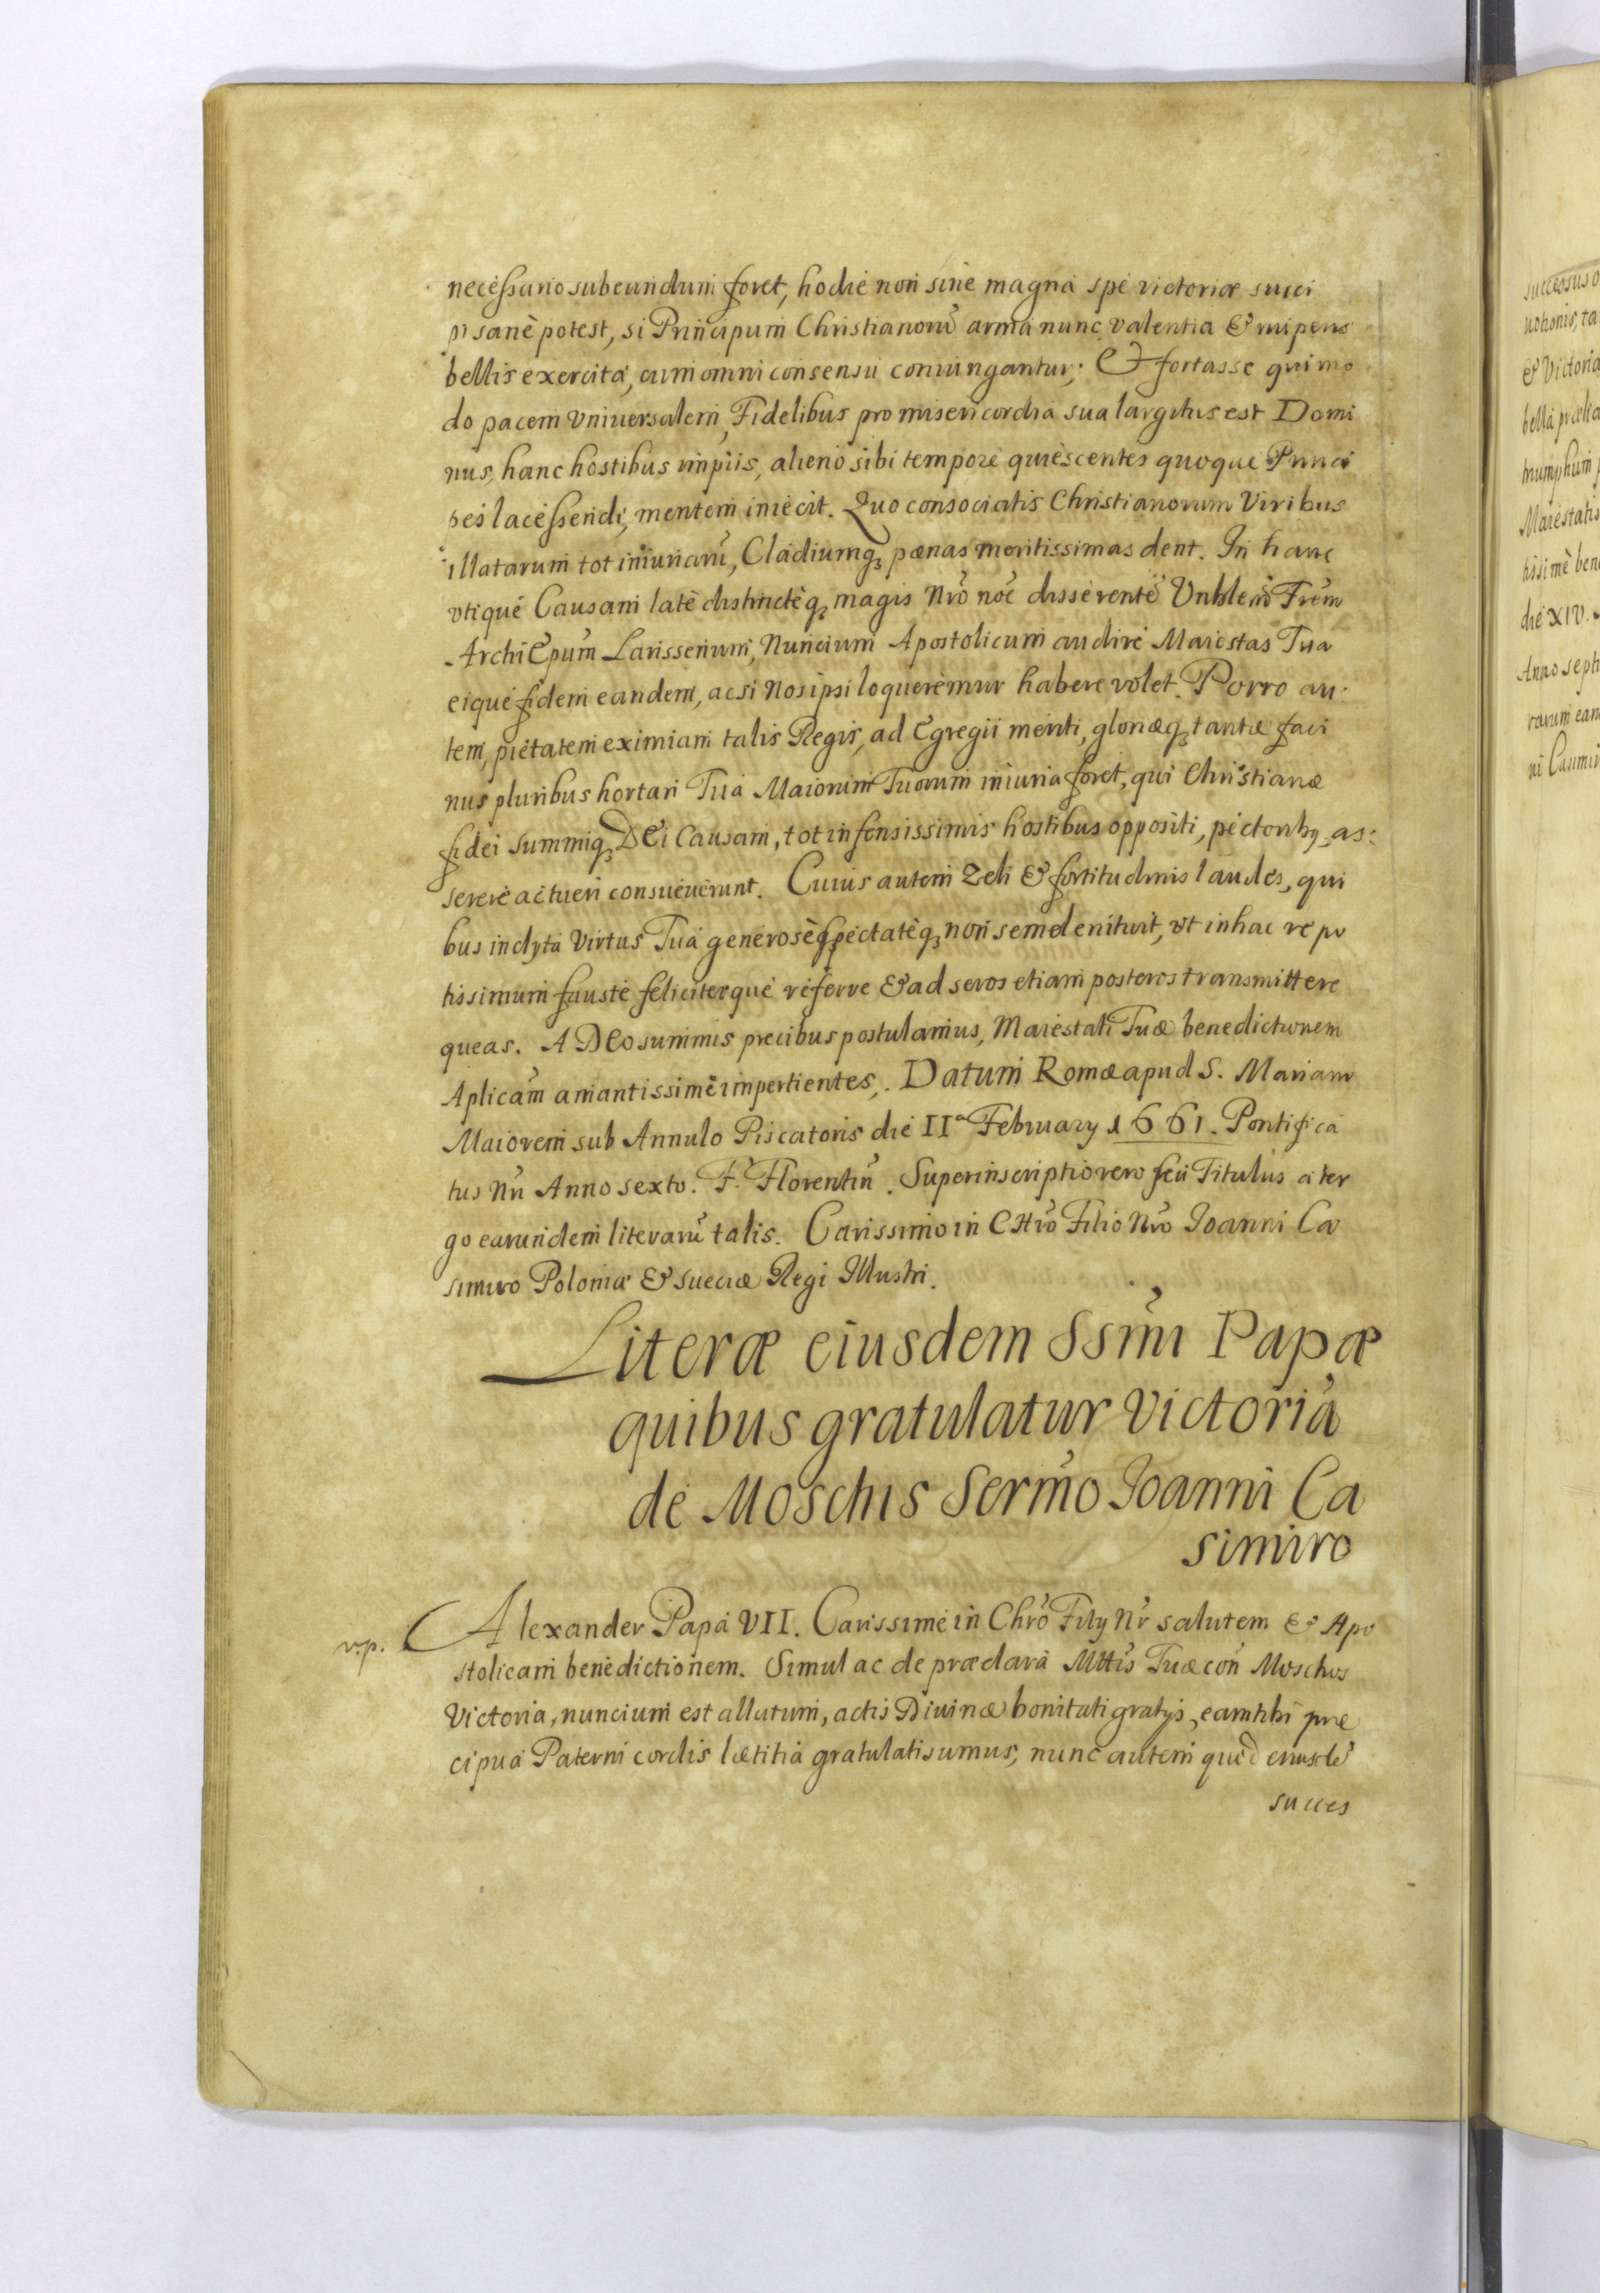 necessario subeundum foret, hodie non sine magna spe victoriæ susci
pi sanè potest, si Principum Christianorũ arma nunc valentia & nuperis
bellis exercita, cum omni consensu coniungantur; Et fortasse qui mo
do pacem vniuersalem, Fidelibus pro misericordia sua largitus est Domi
nus, hanc hostibus impiis, alieno sibi tempore quiescentes quoque Princi
pes lacessendi, mentem iniecit. Quo consociatis Christianorum Viribus
illatarum tot iniuriarũ, Cladiumq3 pænas meritissimas dent. In hanc
vtique Causam latè distinctèq3 magis Nrõ noẽ disserentẽ Vnblem Frem
ArchiEpũm Larissenum, Nuncium Apostolicum audire Maiestas Tua
eique fidem eandem, acsi Nos ipsi loqueremur habere volet. Porro au:
tem, pietatem eximiam talis Regis, ad Egregii meriti, gloriæq3 tantæ faci
nus pluribus hortari Tua Maiorum Tuorum iniuria foret, qui Christianæ
fidei summiq3 DEi Causam, tot infensissimis hostibus oppositi, pectoriby as:
serere ac tueri consueuerunt. Cuius autem Zeli & fortitudinis laudes, qui
bus inclyta Virtus Tua generosè spectatèq3 non semel enituit, vt in hac re po
tissimum fauste feliciterque referre & ad seros etiam posteros transmittere
queas. A DEo summis precibus postulamus, Maiestati Tuæ benedictionem
Aplicam̃ amantissimè impertientes. Datum Romæ apud S. Mariam
Maiorem sub Annulo Piscatoris die IIa February 1661. Pontifica
tus Nri Anno sexto. F. Florentin̄. Superinscriptio vero seu Titulus a ter
go earundem literarũ talis. Carissimo in CHrõ Filio Nrõ Joanni Ca
simiro Poloniæ & Sueciæ Regi Illustri.
Literæ eiusdem Ssmĩ Papæ
quibus gratulatur Victoriã
de Moschis Sermõ Joanni Ca
simiro
v.p. Alexander Papa VII. Carissime in Chrõ Fily Nr̃ salutem & Apo
stolicam benedictionem. Simul ac de præclara Mttis Tuæ con̄ Moschos
Victoria, nuncium est allatum, actis Diuinæ bonitati gratijs, eam tibi præ
cipua Paterni cordis lætitia gratulati sumus, nunc autem quod eiusdẽ
succes
successus
uotionis, ta
& Victoria
bella prælia
triumphum
Maiestatis
tissimè ben
die XIV.
Anno sept
rarum ean
ni Casimir